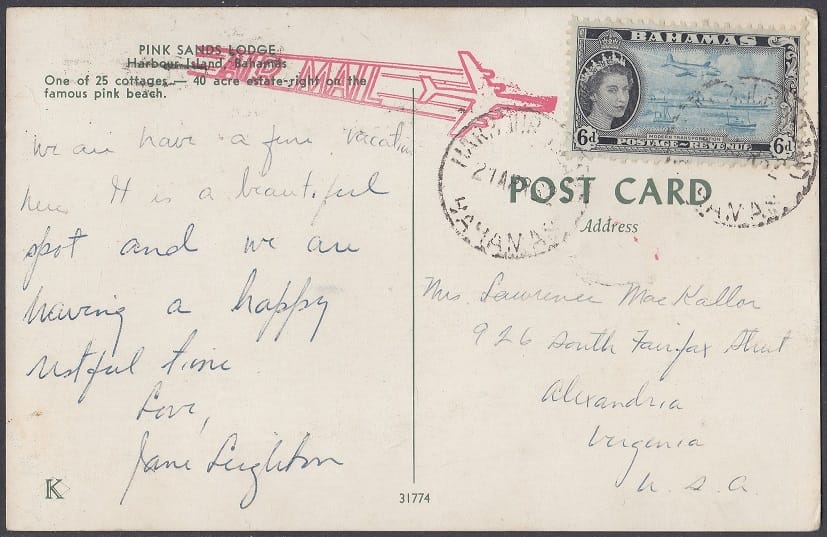 PINK SANDS LODGE
Harbour Island, Bahamas
One of 25 cottages — 40 acre estate-right on the
famous pink beach.
AIR MAIL
BAHAMAS
6d
MODERN TRANSPORTATION
POSTAGE & REVENUE
6d
HARBOUR
21 APR
BAHAMAS
BAHAMAS
POST CARD
Address
We are have a fine vacation
here It is a beautiful
spot and we are
having a happy
restful time
Love,
Jane Leighton
Mrs. Lawrence MacKallor
926 South Fairfax Street
Alexandria
Vergenia
U. S. A.
K
31774